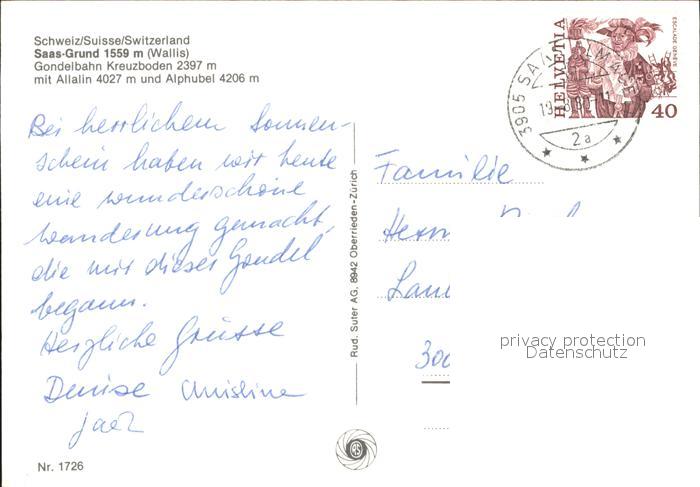 Schweiz/Suisse/Switzerland
Saas-Grund 1559 m (Wallis)
Gondelbahn Kreuzboden 2397 m
mit Allalin 4027 m und Alphubel 4206 m
Bei herrlichem Sonnen-
schein haben wir heute
eine wunderschöne
wanderung gemacht,
die mit dieser Gondel
begann.
Herzliche Grüsse
Denise Christine
Nr. 1726
Rud. Suter AG, 8942 Oberrieden-Zürich
HELVETIA
ESCALADE GENÈVE
40
3905 SAAS
2a
Familie
Herm
300
privacy protection
Datenschutz